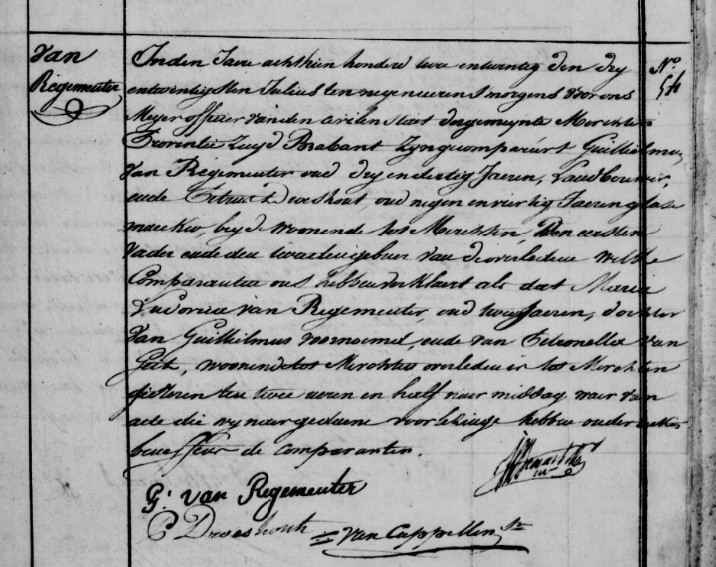 Van
Regemeuter
N.o
54
In den Jare achthien honderd twee en twintig den dry
en twintigsten Julius ten negen uren s'morgens voor ons
Meyer officier van den civilen staet der gemeynte Merchten
Provintie Zuyd Braband zyn gecompareert Guilhelmus
Van Regemeuter oud dry en dertig Jaeren, Landbouwer,
ende Petrus Droeshout, oud negen en viertig Jaeren glase
maeker, beyde woonende tot Merchten, Den eersten
vader ende den tweeden gebeur van de overledene welke
Comparanten ons hebben verklaert als dat Maria
Ludovica van Regemeuter, oud twee Jaeren, dochter
van Guilhelmus voornoemd, ende van Petronella van
Geit, woonende tot Merchten overleden is tot Merchten
gisteren ten twee uren en half naer middag waer van
acte die wy naer gedaene voorlezinge hebben onderteekent
beneffens de comparanten.
G. van Regemeuter
P Droeshout = van Cappellen